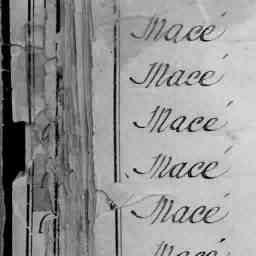 Macé
Macé
Macé
Macé
Macé
Macé